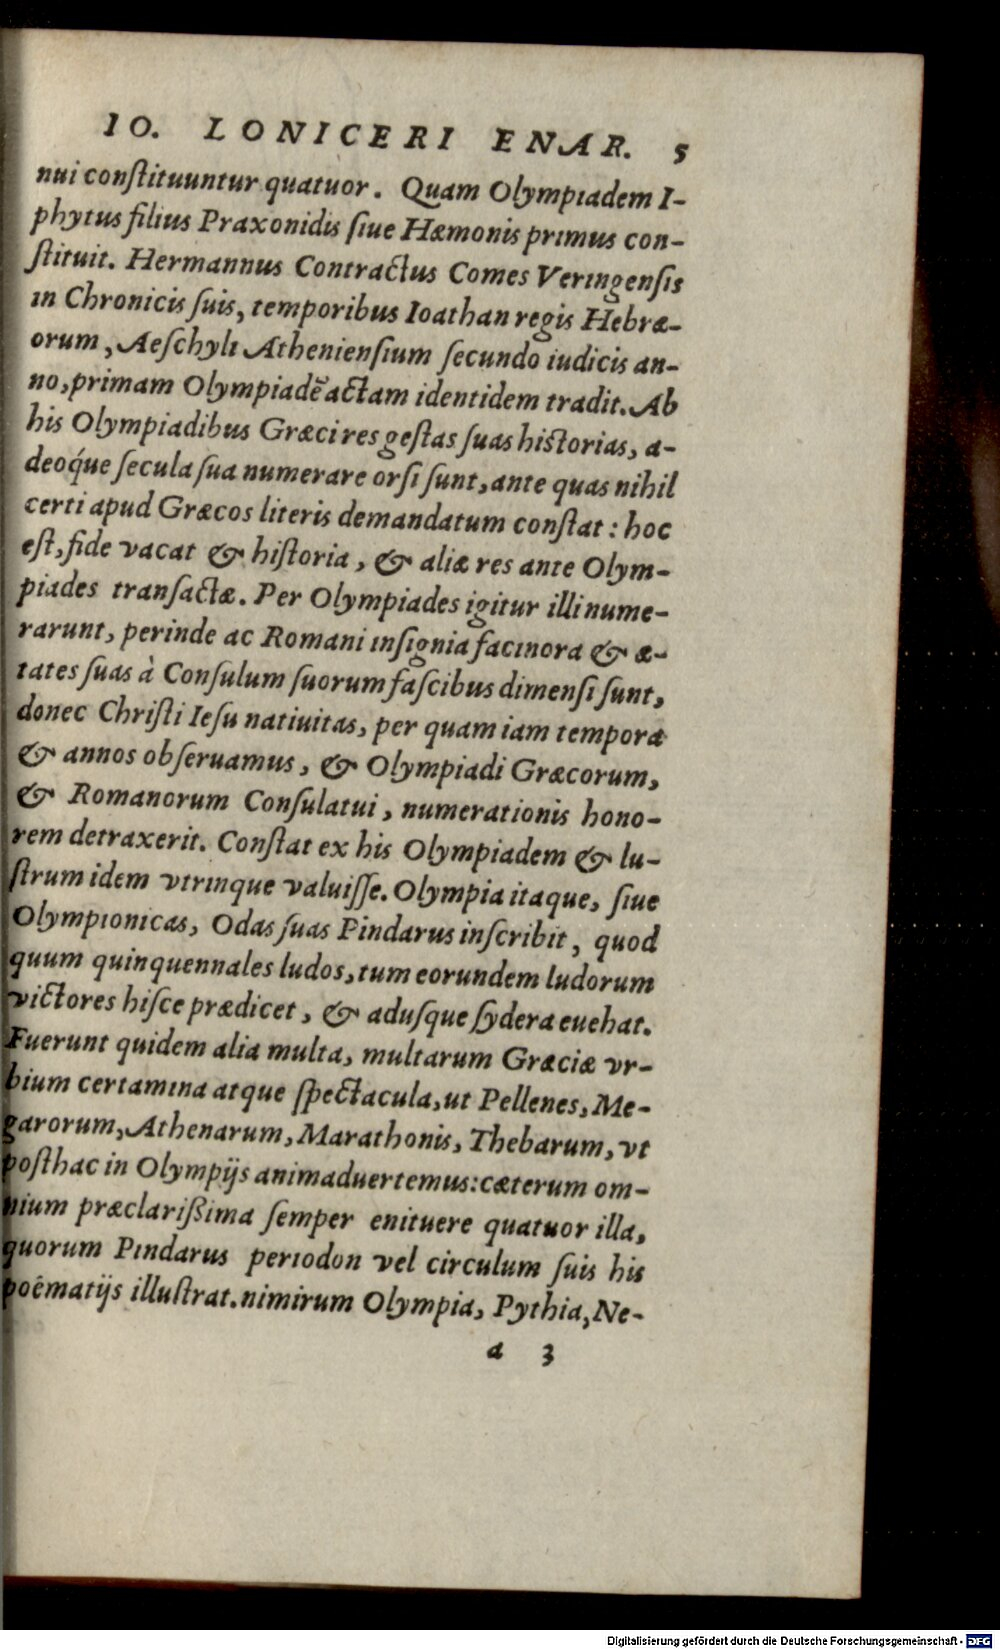 IO. LONICERI ENAR. 5
nui conſtituuntur quatuor. Quam Olympiadem I-
phytus filius Praxonidis ſiue Hæmonis primus con-
ſtituit. Hermannus Contractus Comes Veringenſis
in Chronicis ſuis, temporibus Ioathan regis Hebræ-
orum, Aeſchyli Athenienſium ſecundo iudicis an-
no, primam Olympiadẽ actam identidem tradit. Ab
his Olympiadibus Græci res geſtas ſuas historias, a-
deoq́ue ſecula ſua numerare orſi ſunt, ante quas nihil
certi apud Græcos literis demandatum conſtat: hoc
eſt, fide vacat & hiſtoria, & aliæ res ante Olym-
piades tranſactæ. Per Olympiades igitur illi nume-
rarunt, perinde ac Romani inſignia facinora & æ-
tates ſuas à Conſulum ſuorum faſcibus dimenſi ſunt,
donec Chriſti Ieſu natiuitas, per quam iam tempora
& annos obſeruamus, & Olympiadi Græcorum,
& Romanorum Conſulatui, numerationis hono-
rem detraxerit. Conſtat ex his Olympiadem & lu-
ſtrum idem vtrinque valuiſſe. Olympia itaque, ſiue
Olympionicas, Odas ſuas Pindarus inſcribit, quod
quum quinquennales ludos, tum eorundem ludorum
victores hiſce prædicet, & aduſque ſydera euehat.
Fuerunt quidem alia multa, multarum Græciæ vr-
bium certamina atque ſpectacula, ut Pellenes, Me-
garorum, Athenarum, Marathonis, Thebarum, vt
poſthac in Olympijs animaduertemus: cæterum om-
nium præclarißima ſemper enituere quatuor illa,
quorum Pindarus periodon vel circulum ſuis his
poëmatijs illuſtrat. nimirum Olympia, Pythia, Ne-
a 3
Digitalisierung gefördert durch die Deutsche Forschungsgemeinschaft - DFG